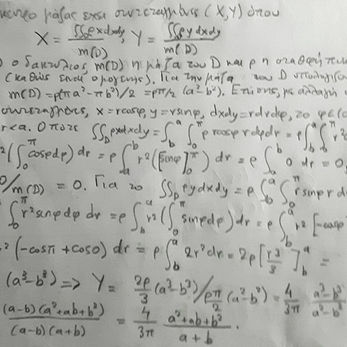 κέντρο μάζας έχει συντεταγμένες (X,Y) όπου
X = ∬ρxdxdy / m(D), Y = ∬ρydxdy / m(D)
ο δακτύλιος, m(D) η μάζα του D και ρ η σταθερή
(καθώς είναι ομογενής). Για την μάζα του D
m(D) = ρ(πa²-πb²)/2 = ρπ/2 (a²-b²). Επίσης, με αλλαγή
συντεταγμένες, x=rcosφ, y=rsinφ, dxdy=rdrdφ, το φ∈(0
r<a. Οπότε ∬_D ρxdxdy = ∫_b^a ∫_0^π ρ rcosφ rdφdr = ρ∫_b^a ∫_0^π r²
²(∫_0^π cosφdφ) dr = ρ ∫_b^a r² [sinφ]_0^π dr = ρ ∫_b^a 0 dr = 0,
0/m(D) = 0. Για το ∬_D ρydxdy = ρ ∫_b^a ∫_0^π r sinφ r d
∫_0^π r² sinφ dφ dr = ρ ∫_b^a r² (∫_0^π sinφdφ) dr = ρ ∫_b^a r² [-cosφ]
² (-cosπ + cos0) dr = ρ ∫_b^a 2r² dr = 2ρ [r³/3]_b^a =
(a³-b³) => Y = 2ρ/3 (a³-b³) / ρπ/2 (a²-b²) = 4/3π a³-b³/a²-b²
(a-b)(a²+ab+b²) / (a-b)(a+b) = 4/3π a²+ab+b² / a+b .